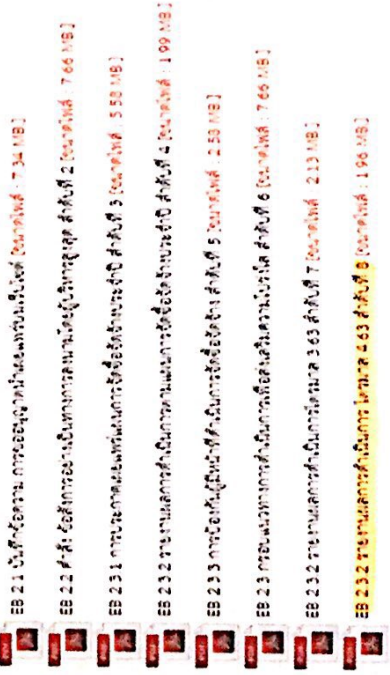 EB 2 2 1 บันทึกข้อความ การขออนุญาตนำเผยแพร่บนเว็บไซต์ [ขนาดไฟล์ : 7 34 MB]
EB 2 2 คำสั่ง ข้อสั่งการอย่างเป็นทางการลงนามโดยผู้บริหารสูงสุด ลำดับที่ 2 [ขนาดไฟล์ : 7 66 MB]
EB 2 3 1 การประกาศเผยแพร่แผนการจัดซื้อจัดจ้างประจำปี ลำดับที่ 3 [ขนาดไฟล์ : 5 58 MB]
EB 2 3 2 รายงานผลการดำเนินการตามแผนการจัดซื้อจัดจ้างประจำปี ลำดับที่ 4 [ขนาดไฟล์ : 1 99 MB]
EB 2 3 3 การป้องกันผู้มีหน้าที่ดำเนินการจัดซื้อจัดจ้าง ลำดับที่ 5 [ขนาดไฟล์ : 2 58 MB]
EB 2 3 กรอบแนวทางการดำเนินการเพื่อส่งเสริมความโปร่งใส ลำดับที่ 6 [ขนาดไฟล์ : 7 66 MB]
EB 2 3 2 รายงานผลการดำเนินการไตรมาส 3 63 ลำดับที่ 7 [ขนาดไฟล์ : 2 13 MB]
EB 2 3 2 รายงานผลการดำเนินการ ไตรมาส 4 63 ลำดับที่ 8 [ขนาดไฟล์ : 1 96 MB]